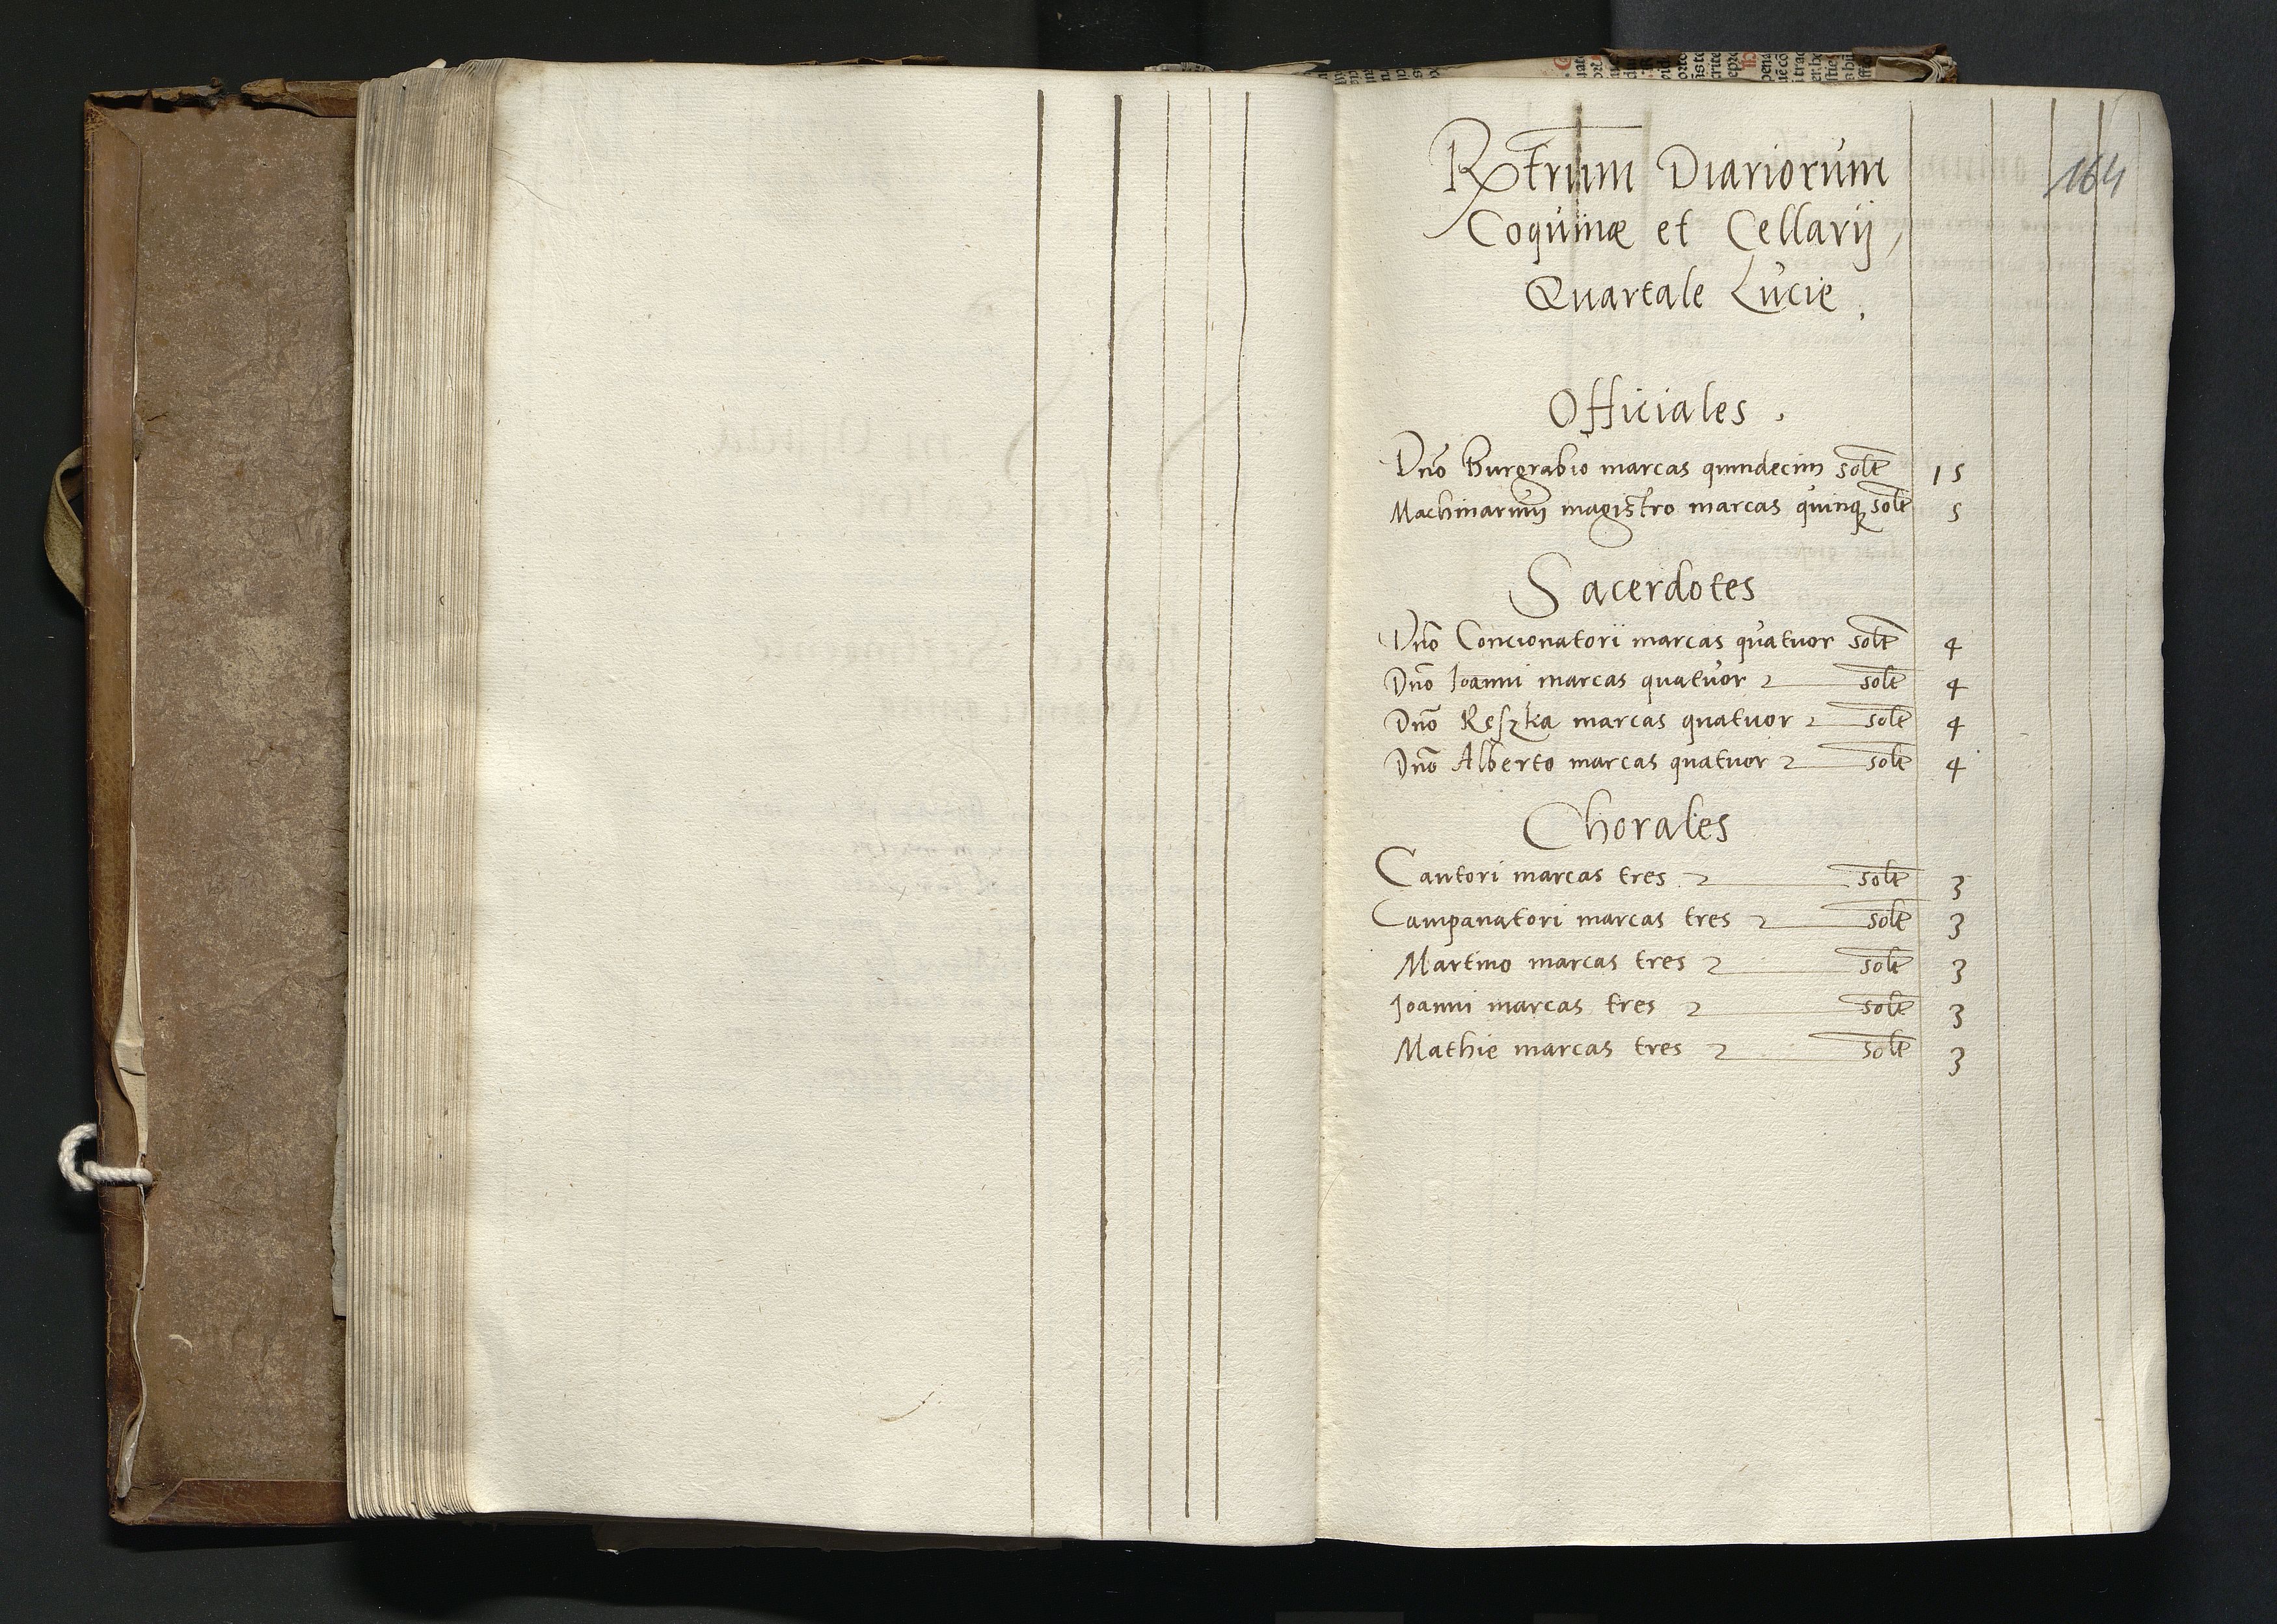 164
Rtrum Diariorum
Coquinæ et Cellarij,
Quartale Lucie.
Officiales.
Dno Burgrabio marcas quindecim solt 15
Machinarum magistro marcas quinq solt 5
Sacerdotes
Dno Concionatorii marcas quatuor solt 4
Dno Ioanni marcas quatuor solt 4
Dno Reszka marcas quatuor solt 4
Dno Alberto marcas quatuor solt 4
Chorales
Cantori marcas tres solt 3
Campanatori marcas tres solt 3
Martino marcas tres solt 3
Ioanni marcas tres solt 3
Mathie marcas tres solt 3